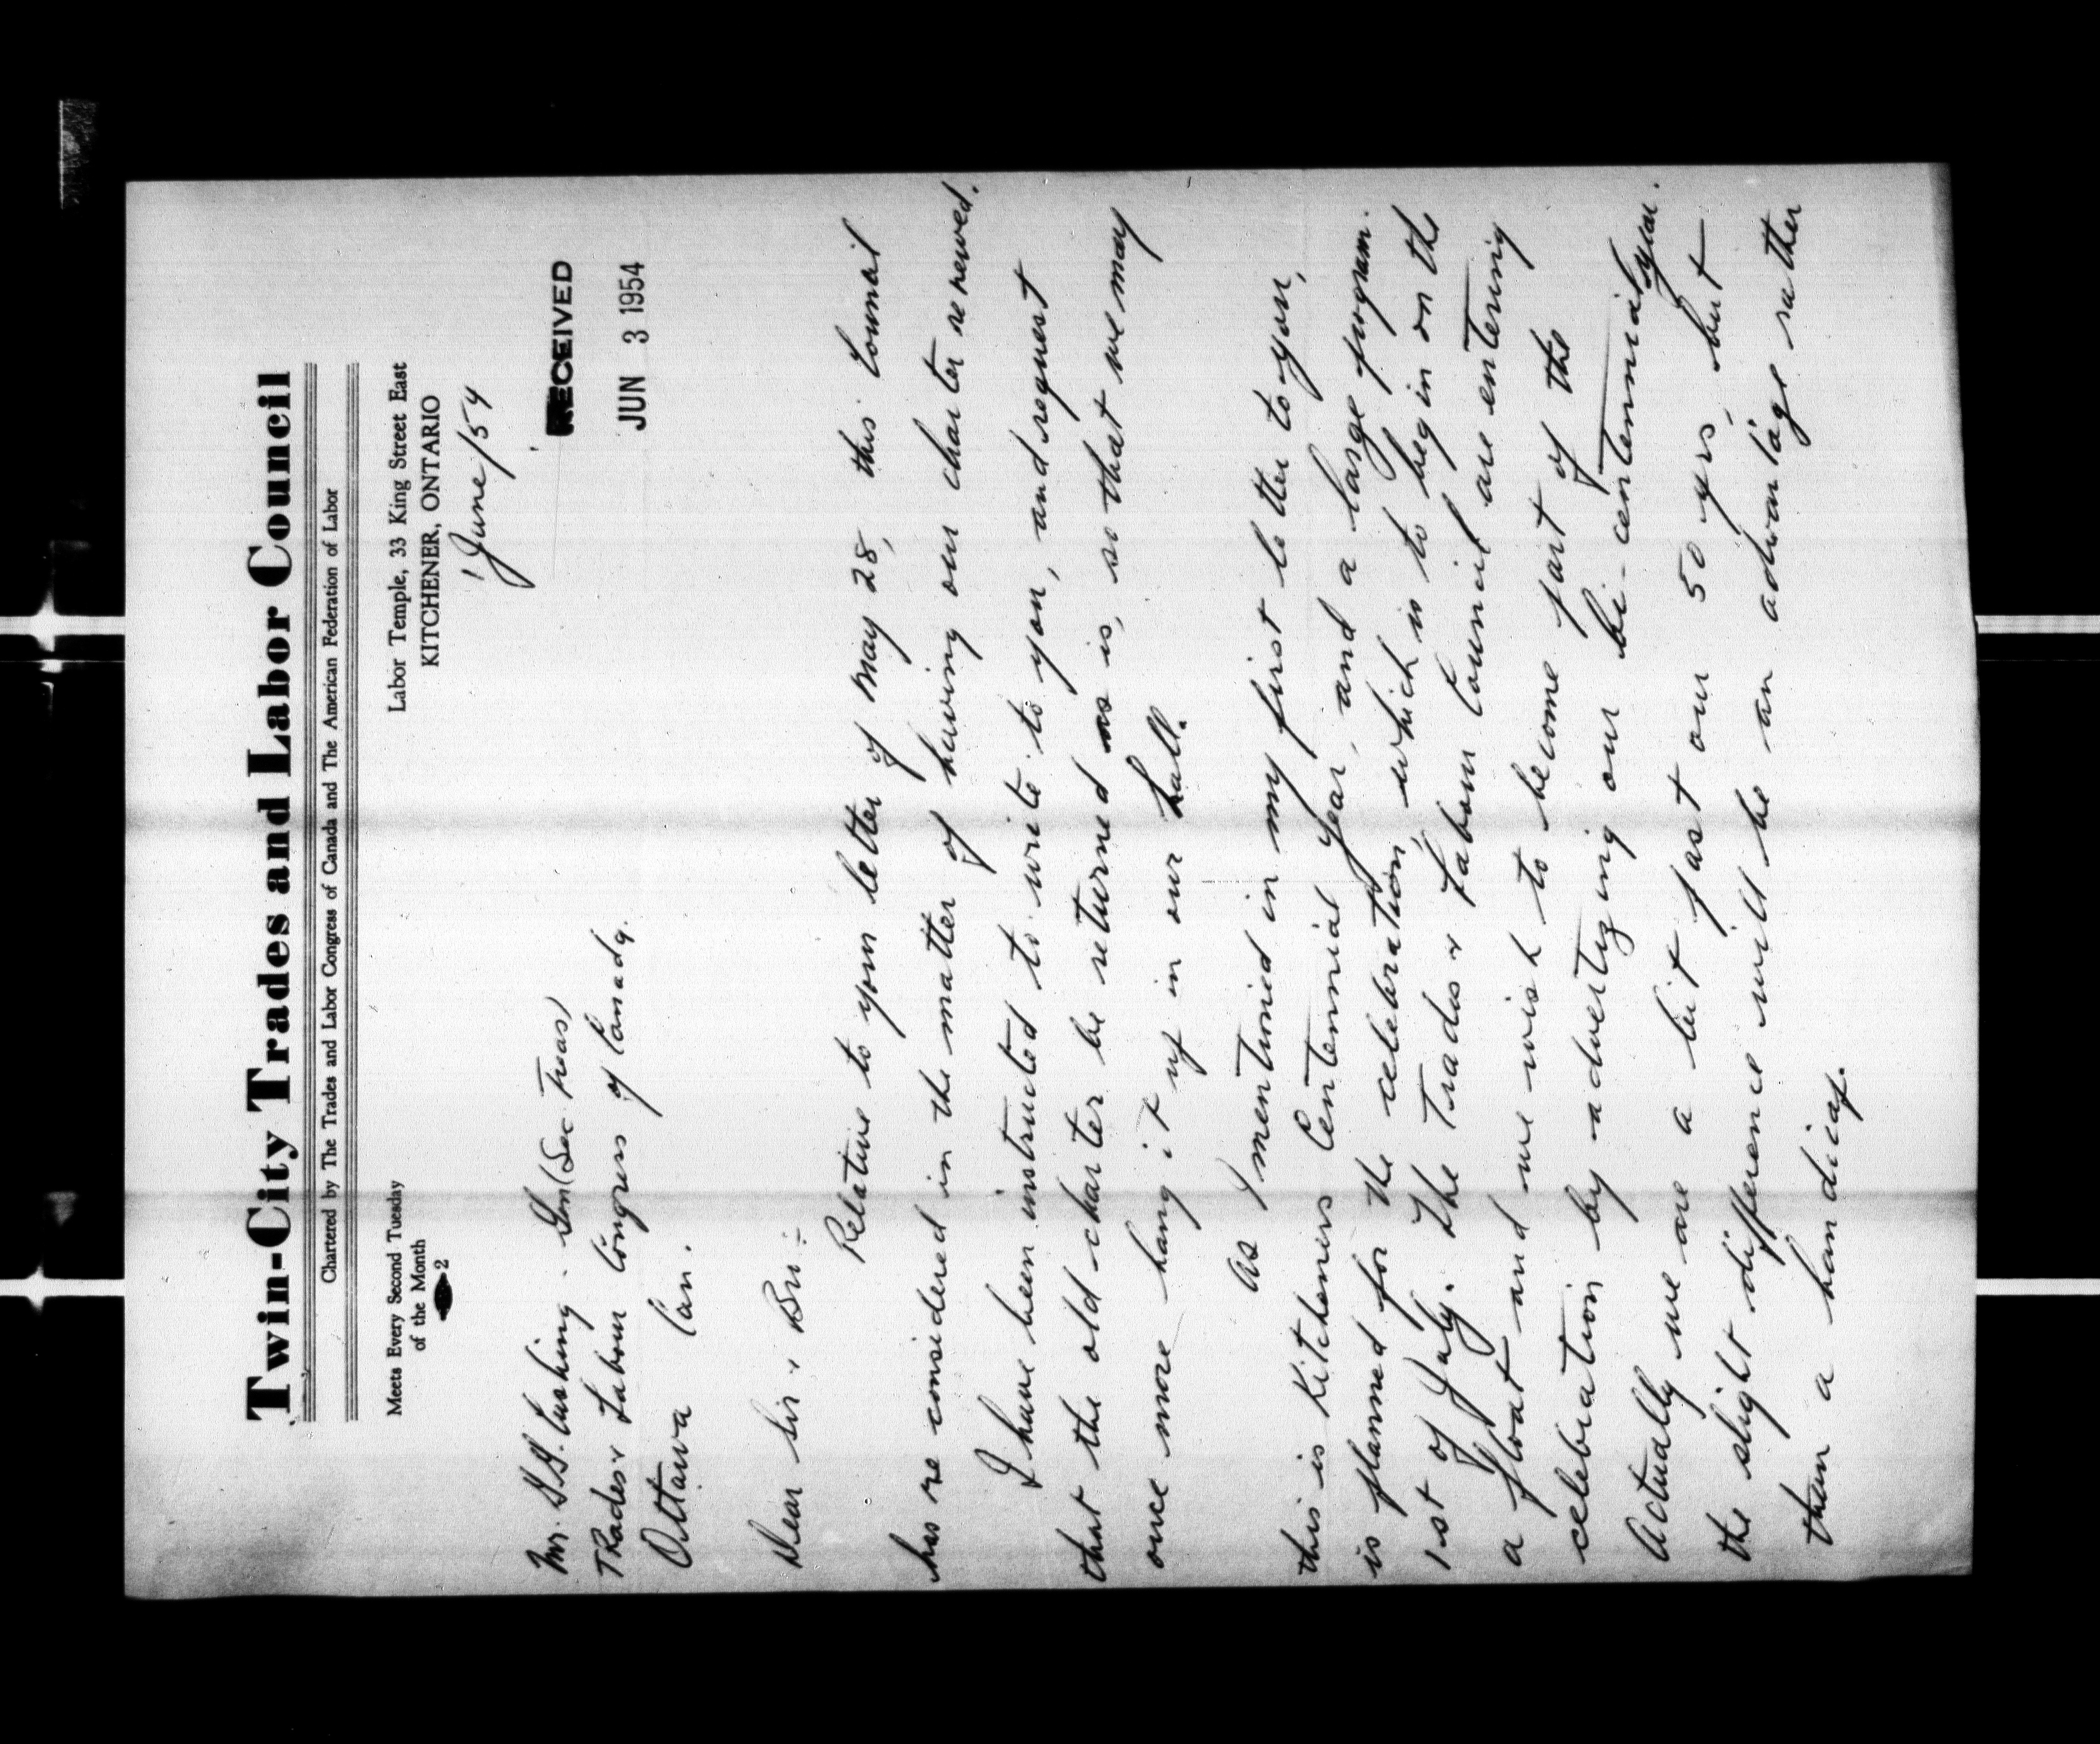 Twin-City Trades and Labor Council
Chartered by The Trades and Labor Congress of Canada and The American Federation of Labor
Meets Every Second Tuesday
of the Month
2
Labor Temple, 33 King Street East
KITCHENER, ONTARIO
1 June/54
RECEIVED
JUN 3 1954
Mr. G.G. Cushing. Gen (Sec Treas)
Trades & Labour Congress of Canada.
Ottawa Can.
Dear Sir & Bro:-
Relative to your letter of May 28, this Council
has re considered in the matter of having our charter renewed.
I have been instructed to write to you, and request
that the old charter be returned as is, so that we may
once more hang it up in our hall.
As I mentioned in my first letter to you,
this is Kitcheners Centennial Year, and a large program.
is planned for the celebration which is to begin on the
1st of July. The Trades & Labour Council are entering
a float and we wish to become part of the
celebration by advertizing our bi-centennial year.
Actually we are a bit past our 50 yrs, but
the slight difference will be an advantage rather
than a handicap.